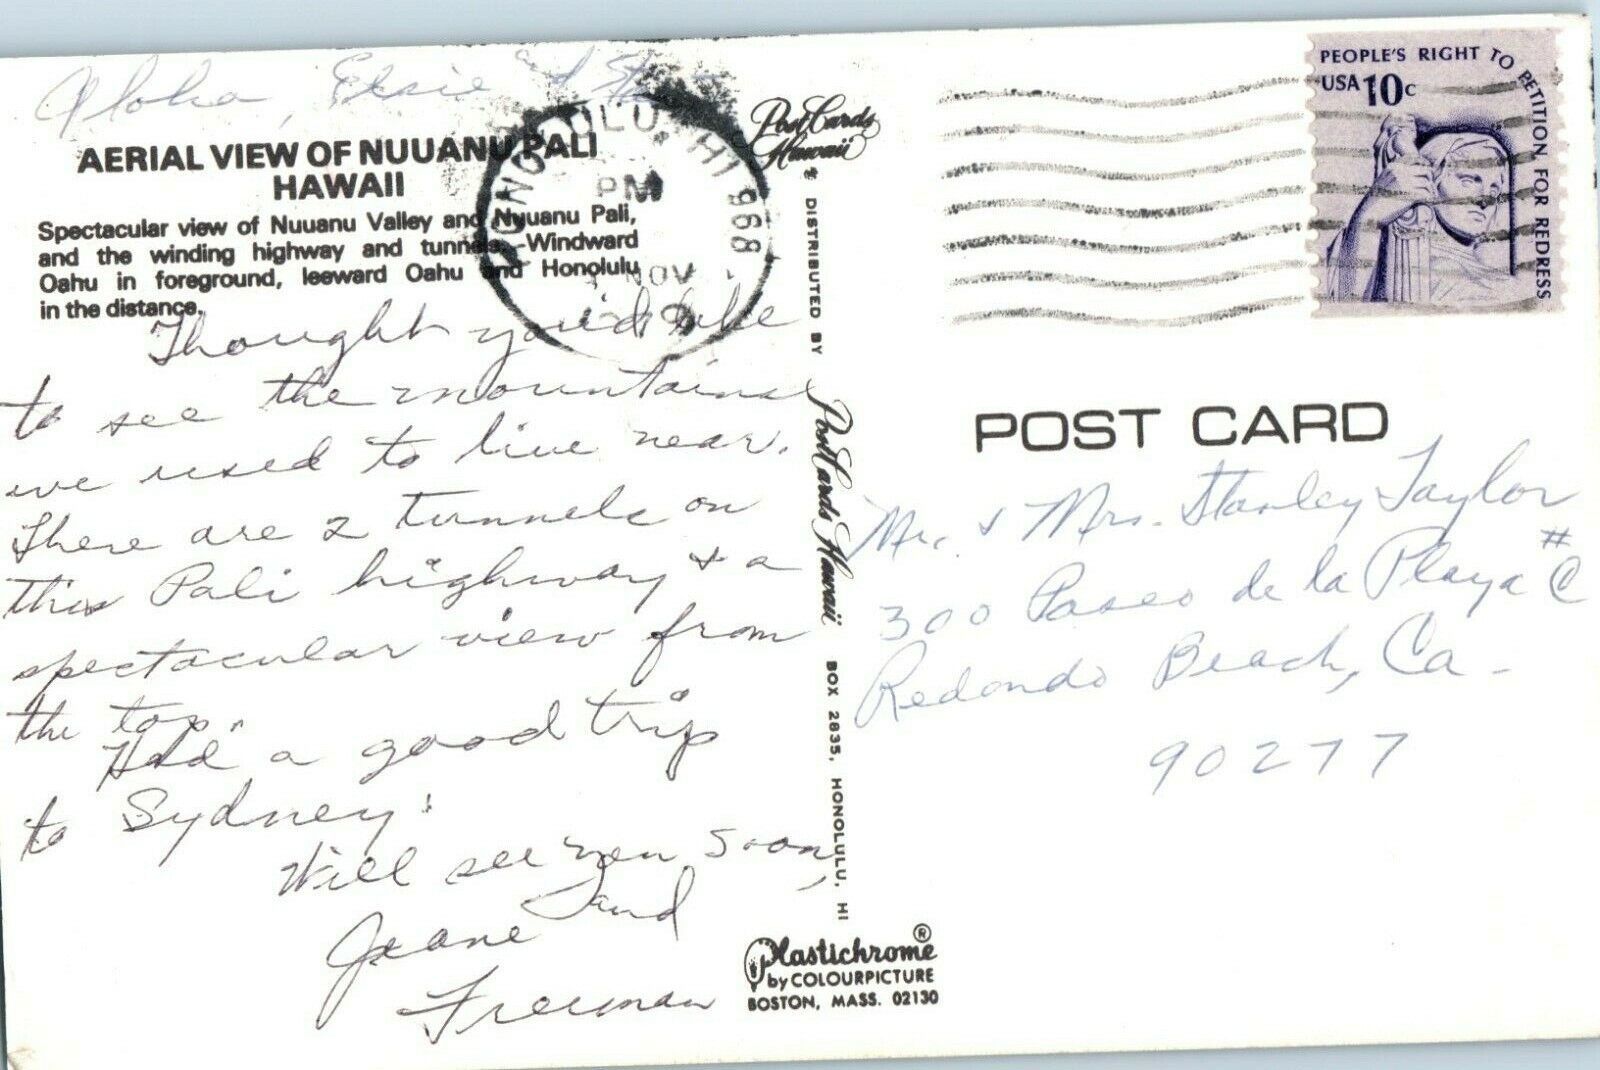 Aloha, Elsie and
AERIAL VIEW OF NUUANU PALI
HAWAII
Spectacular view of Nuuanu Valley and Nuuanu Pali,
and the winding highway and tunnels.-Windward
Oahu in foreground, leeward Oahu and Honolulu
in the distance.
Thought you'd like
to see the mountains
we used to live near.
There are 2 tunnels on
this Pali highway & a
spectacular view from
the top.
Had a good trip
to Sydney.
Will see you soon,
Jeane and
Freeman
HONOLULU, HI 968
PM
NOV
Post Cards
Hawaii
DISTRIBUTED BY Post Cards Hawaii BOX 2835, HONOLULU, HI
Plastichrome®
by COLOURPICTURE
BOSTON, MASS. 02130
PEOPLE'S RIGHT TO PETITION FOR REDRESS
USA 10c
POST CARD
Mr. & Mrs. Stanley Taylor
300 Paseo de la Playa #C
Redondo Beach, Ca-
90277